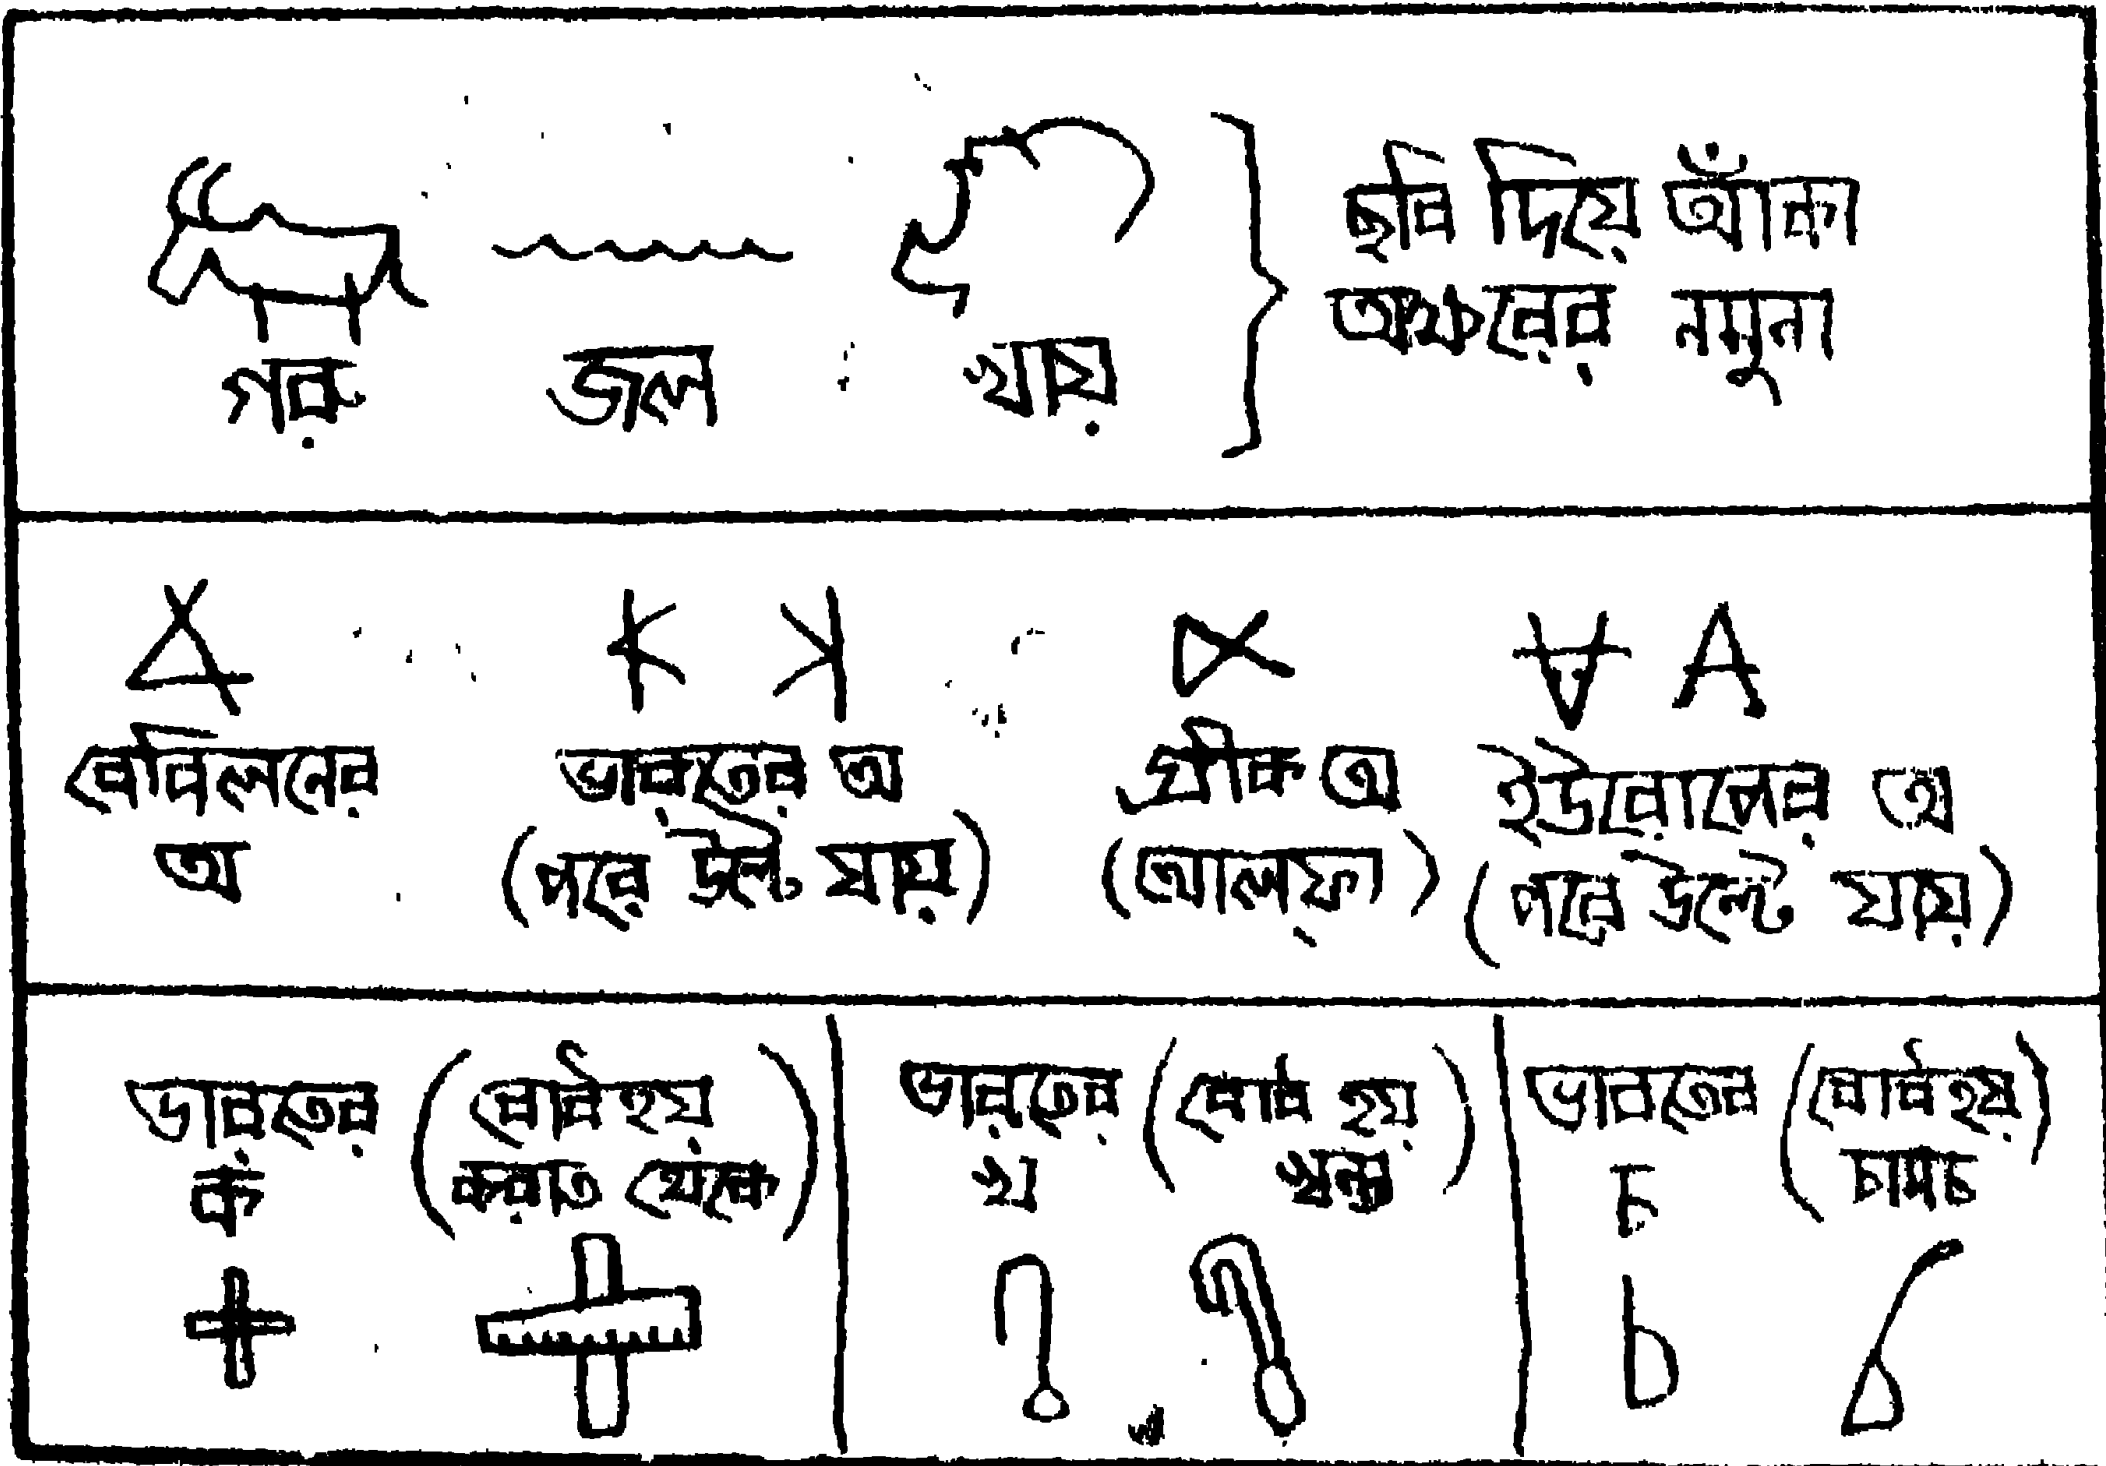 ছবি দিয়ে আঁকা
অক্ষরের নমুনা
গরু জল খায়
বেবিলনের
অ
ভারতের অ
(পরে উল্টে যায়)
গ্রীক অ
(আল্‌ফা)
ইউরোপের অ
(পরে উল্টে যায়)
ভারতের
ক
(বোধ হয়
করাত থেকে)
ভারতের
খ
(বোধ হয়
খন্তা)
ভারতের
চ
(বোধ হয়
চামচ)